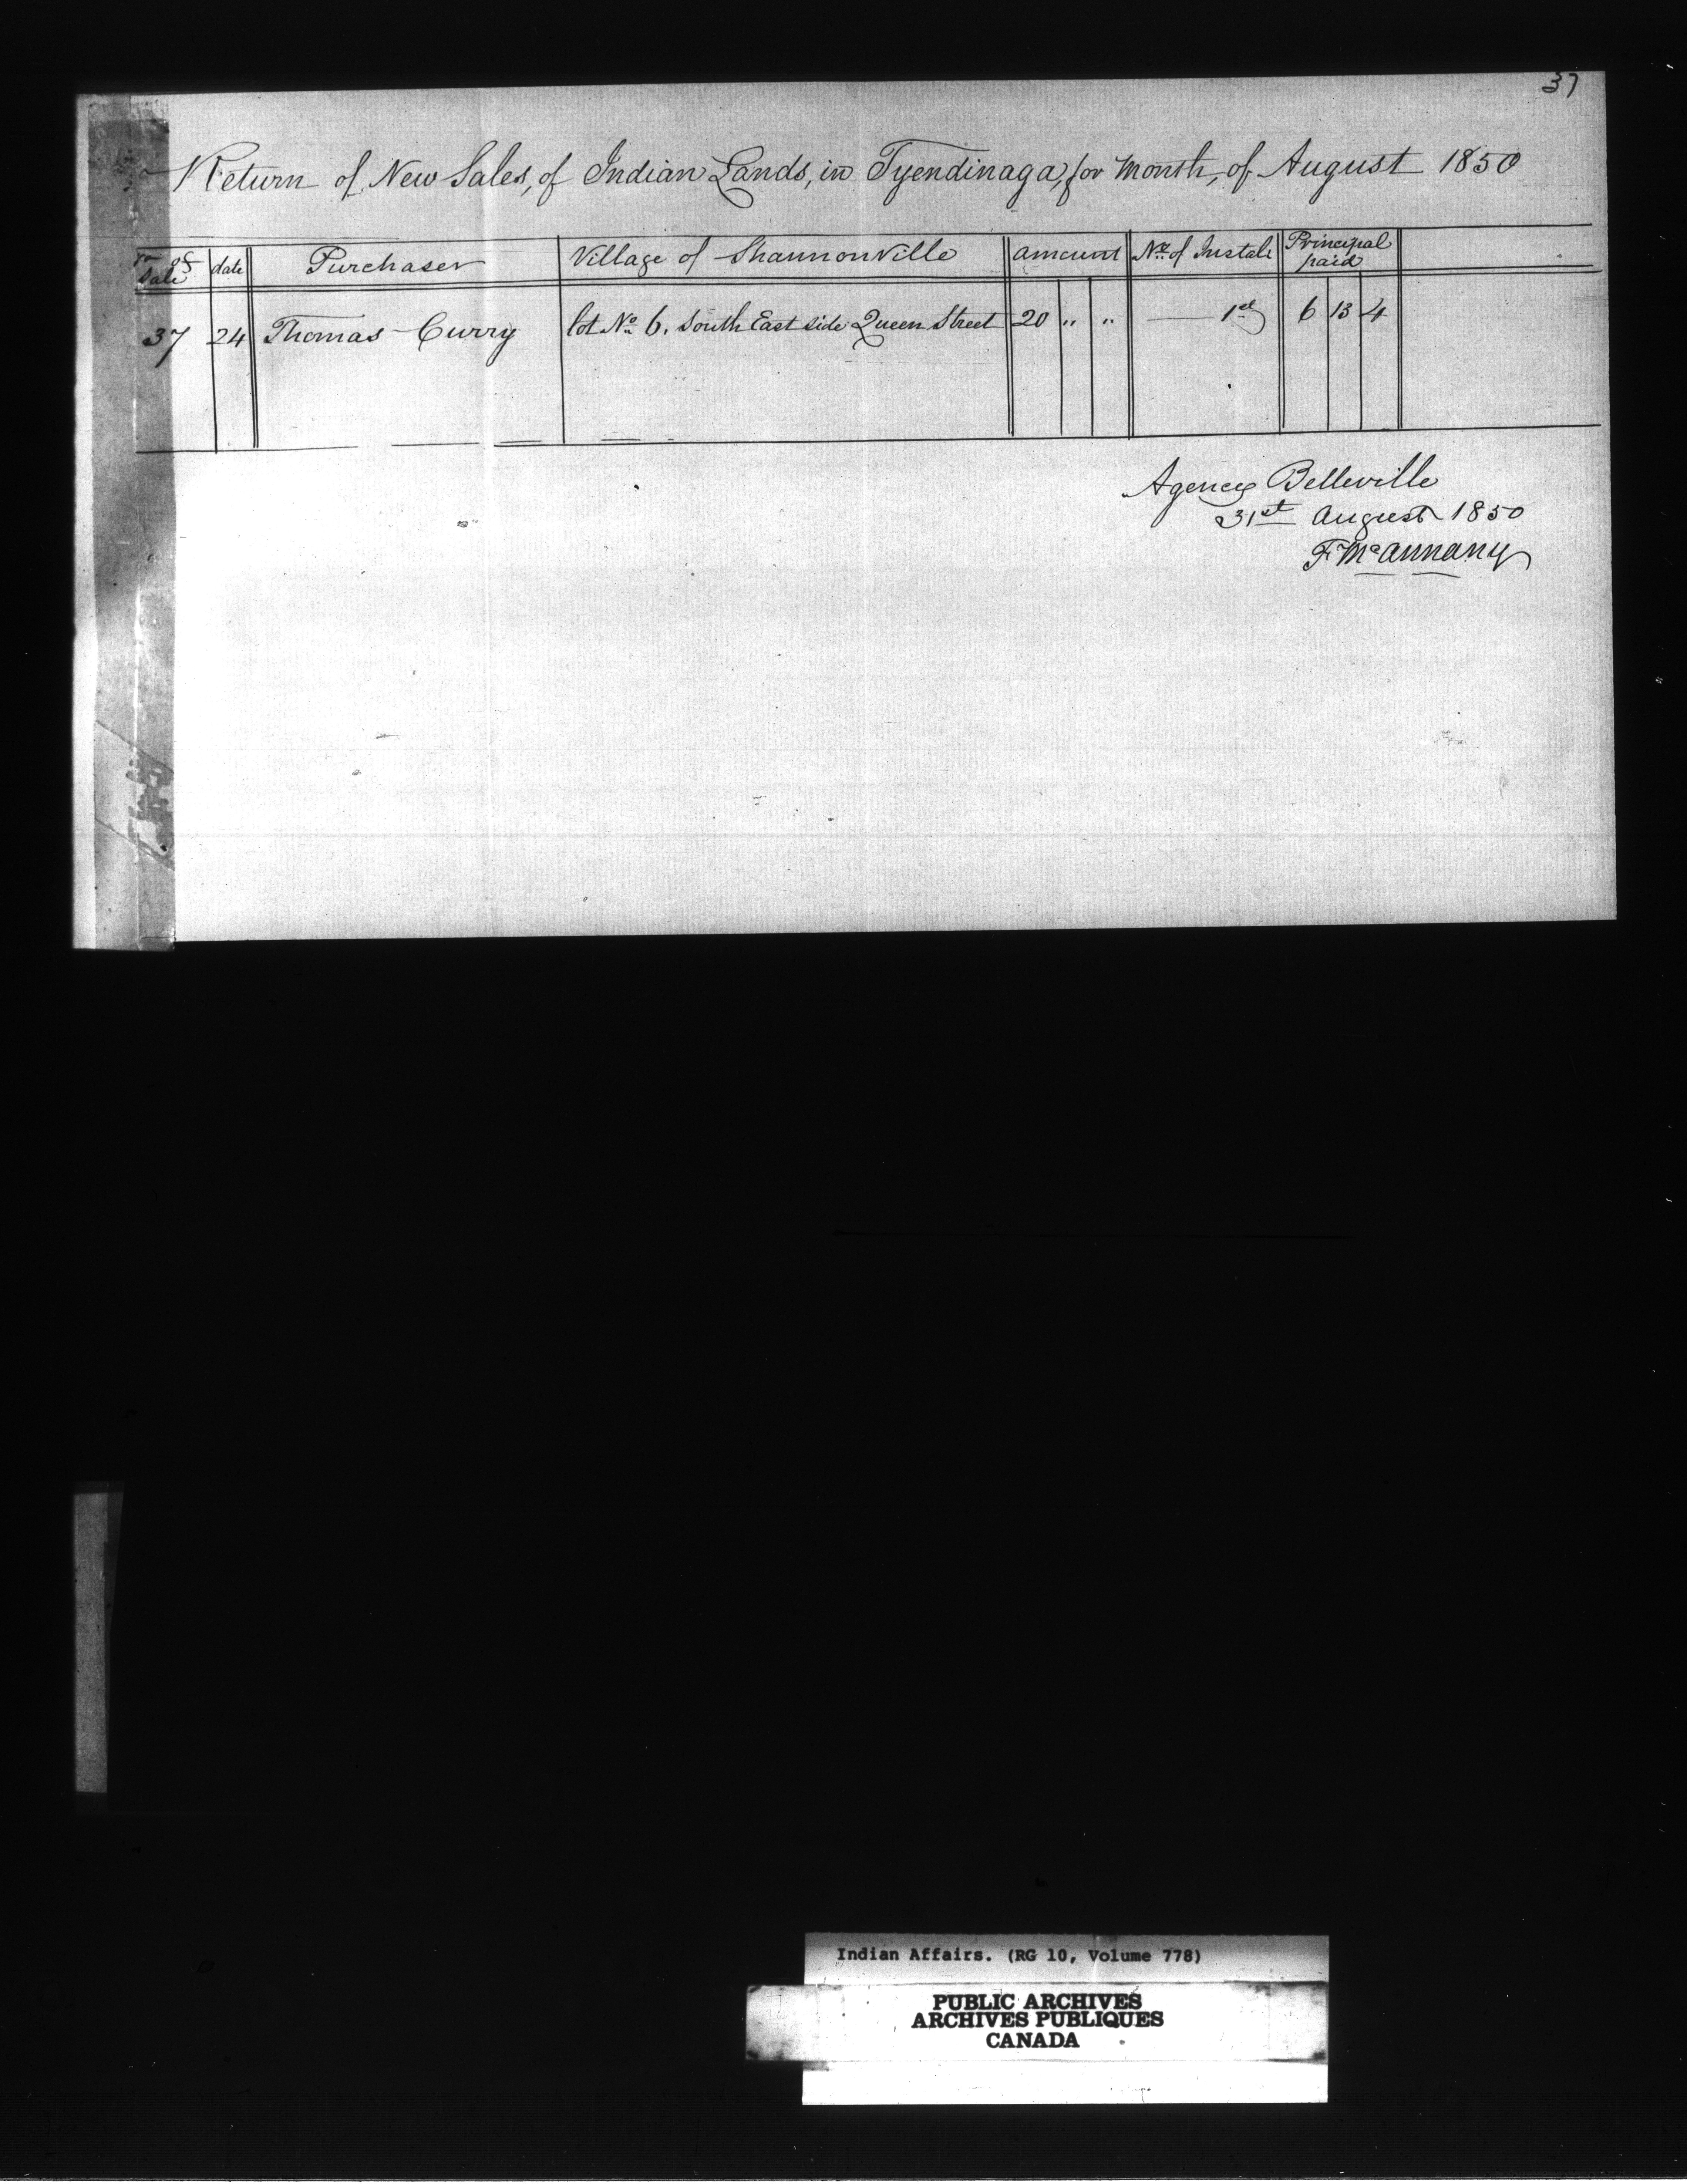 37
Return of New Sales, of Indian Lands, in Tyendinaga, for Month, of August 1850
of Sale date Purchaser Village of Shannonville amount No. of Instals Principal paid
37 24 Thomas Curry lot No. 6. South East side Queen Street 20 " " 1st 6 13 4
Agency Belleville
31st August 1850
F McAnnany
Indian Affairs. (RG 10, Volume 778)
PUBLIC ARCHIVES
ARCHIVES PUBLIQUES
CANADA